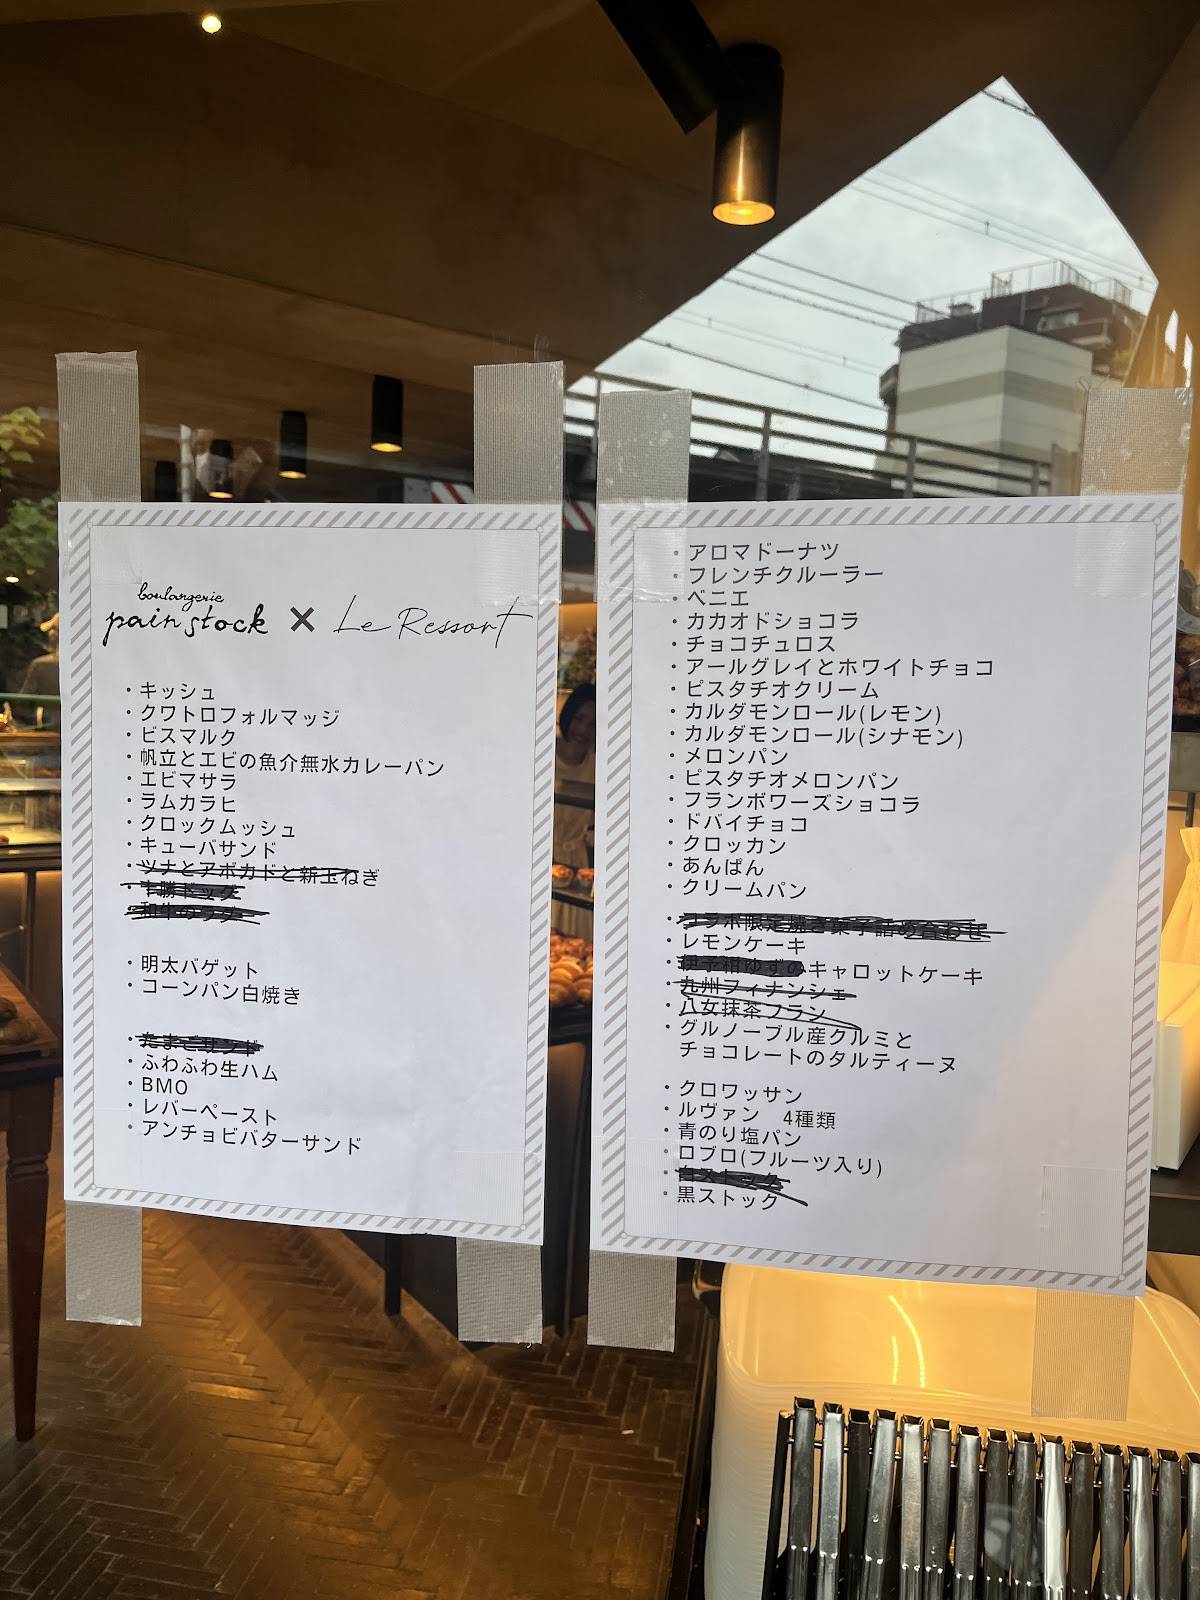 boulangerie
pain stock × Le Ressort
・キッシュ
・クワトロフォルマッジ
・ビスマルク
・帆立とエビの魚介無水カレーパン
・エビマサラ
・ラムカラヒ
・クロックムッシュ
・キューバサンド
・ツナとアボカドと新玉ねぎ
・十勝ドッグ
・和牛の
・明太バゲット
・コーンパン白焼き
・たまごサンド
・ふわふわ生ハム
・BMO
・レバーペースト
・アンチョビバターサンド
・アロマドーナツ
・フレンチクルーラー
・ベニエ
・カカオドショコラ
・チョコチュロス
・アールグレイとホワイトチョコ
・ピスタチオクリーム
・カルダモンロール(レモン)
・カルダモンロール(シナモン)
・メロンパン
・ピスタチオメロンパン
・フランボワーズショコラ
・ドバイチョコ
・クロッカン
・あんぱん
・クリームパン
・コラボ限定焼き菓子詰め合わせ
・レモンケーキ
・伊予柑ゆずのキャロットケーキ
・九州フィナンシェ
・八女抹茶フラン
・グルノーブル産クルミと
チョコレートのタルティーヌ
・クロワッサン
・ルヴァン　4種類
・青のり塩パン
・ロブロ(フルーツ入り)
・白ストック
・黒ストック